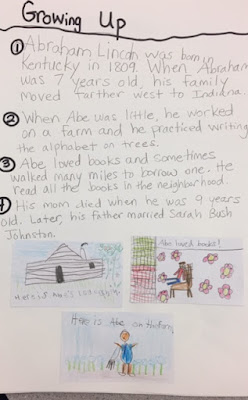 Growing Up
① Abraham Lincoln was born in
Kentucky in 1809. When Abraham
was 7 years old, his family
moved farther west to Indiana.
② When Abe was little, he worked
on a farm and he practiced writing
the alphabet on trees.
③ Abe loved books and sometimes
walked many miles to borrow one. He
read all the books in the neighborhood.
④ His mom died when he was 9 years
old. Later, his father married Sarah Bush
Johnston.
Abe loved books!
Here is Abe's
Here is Abe on the farm